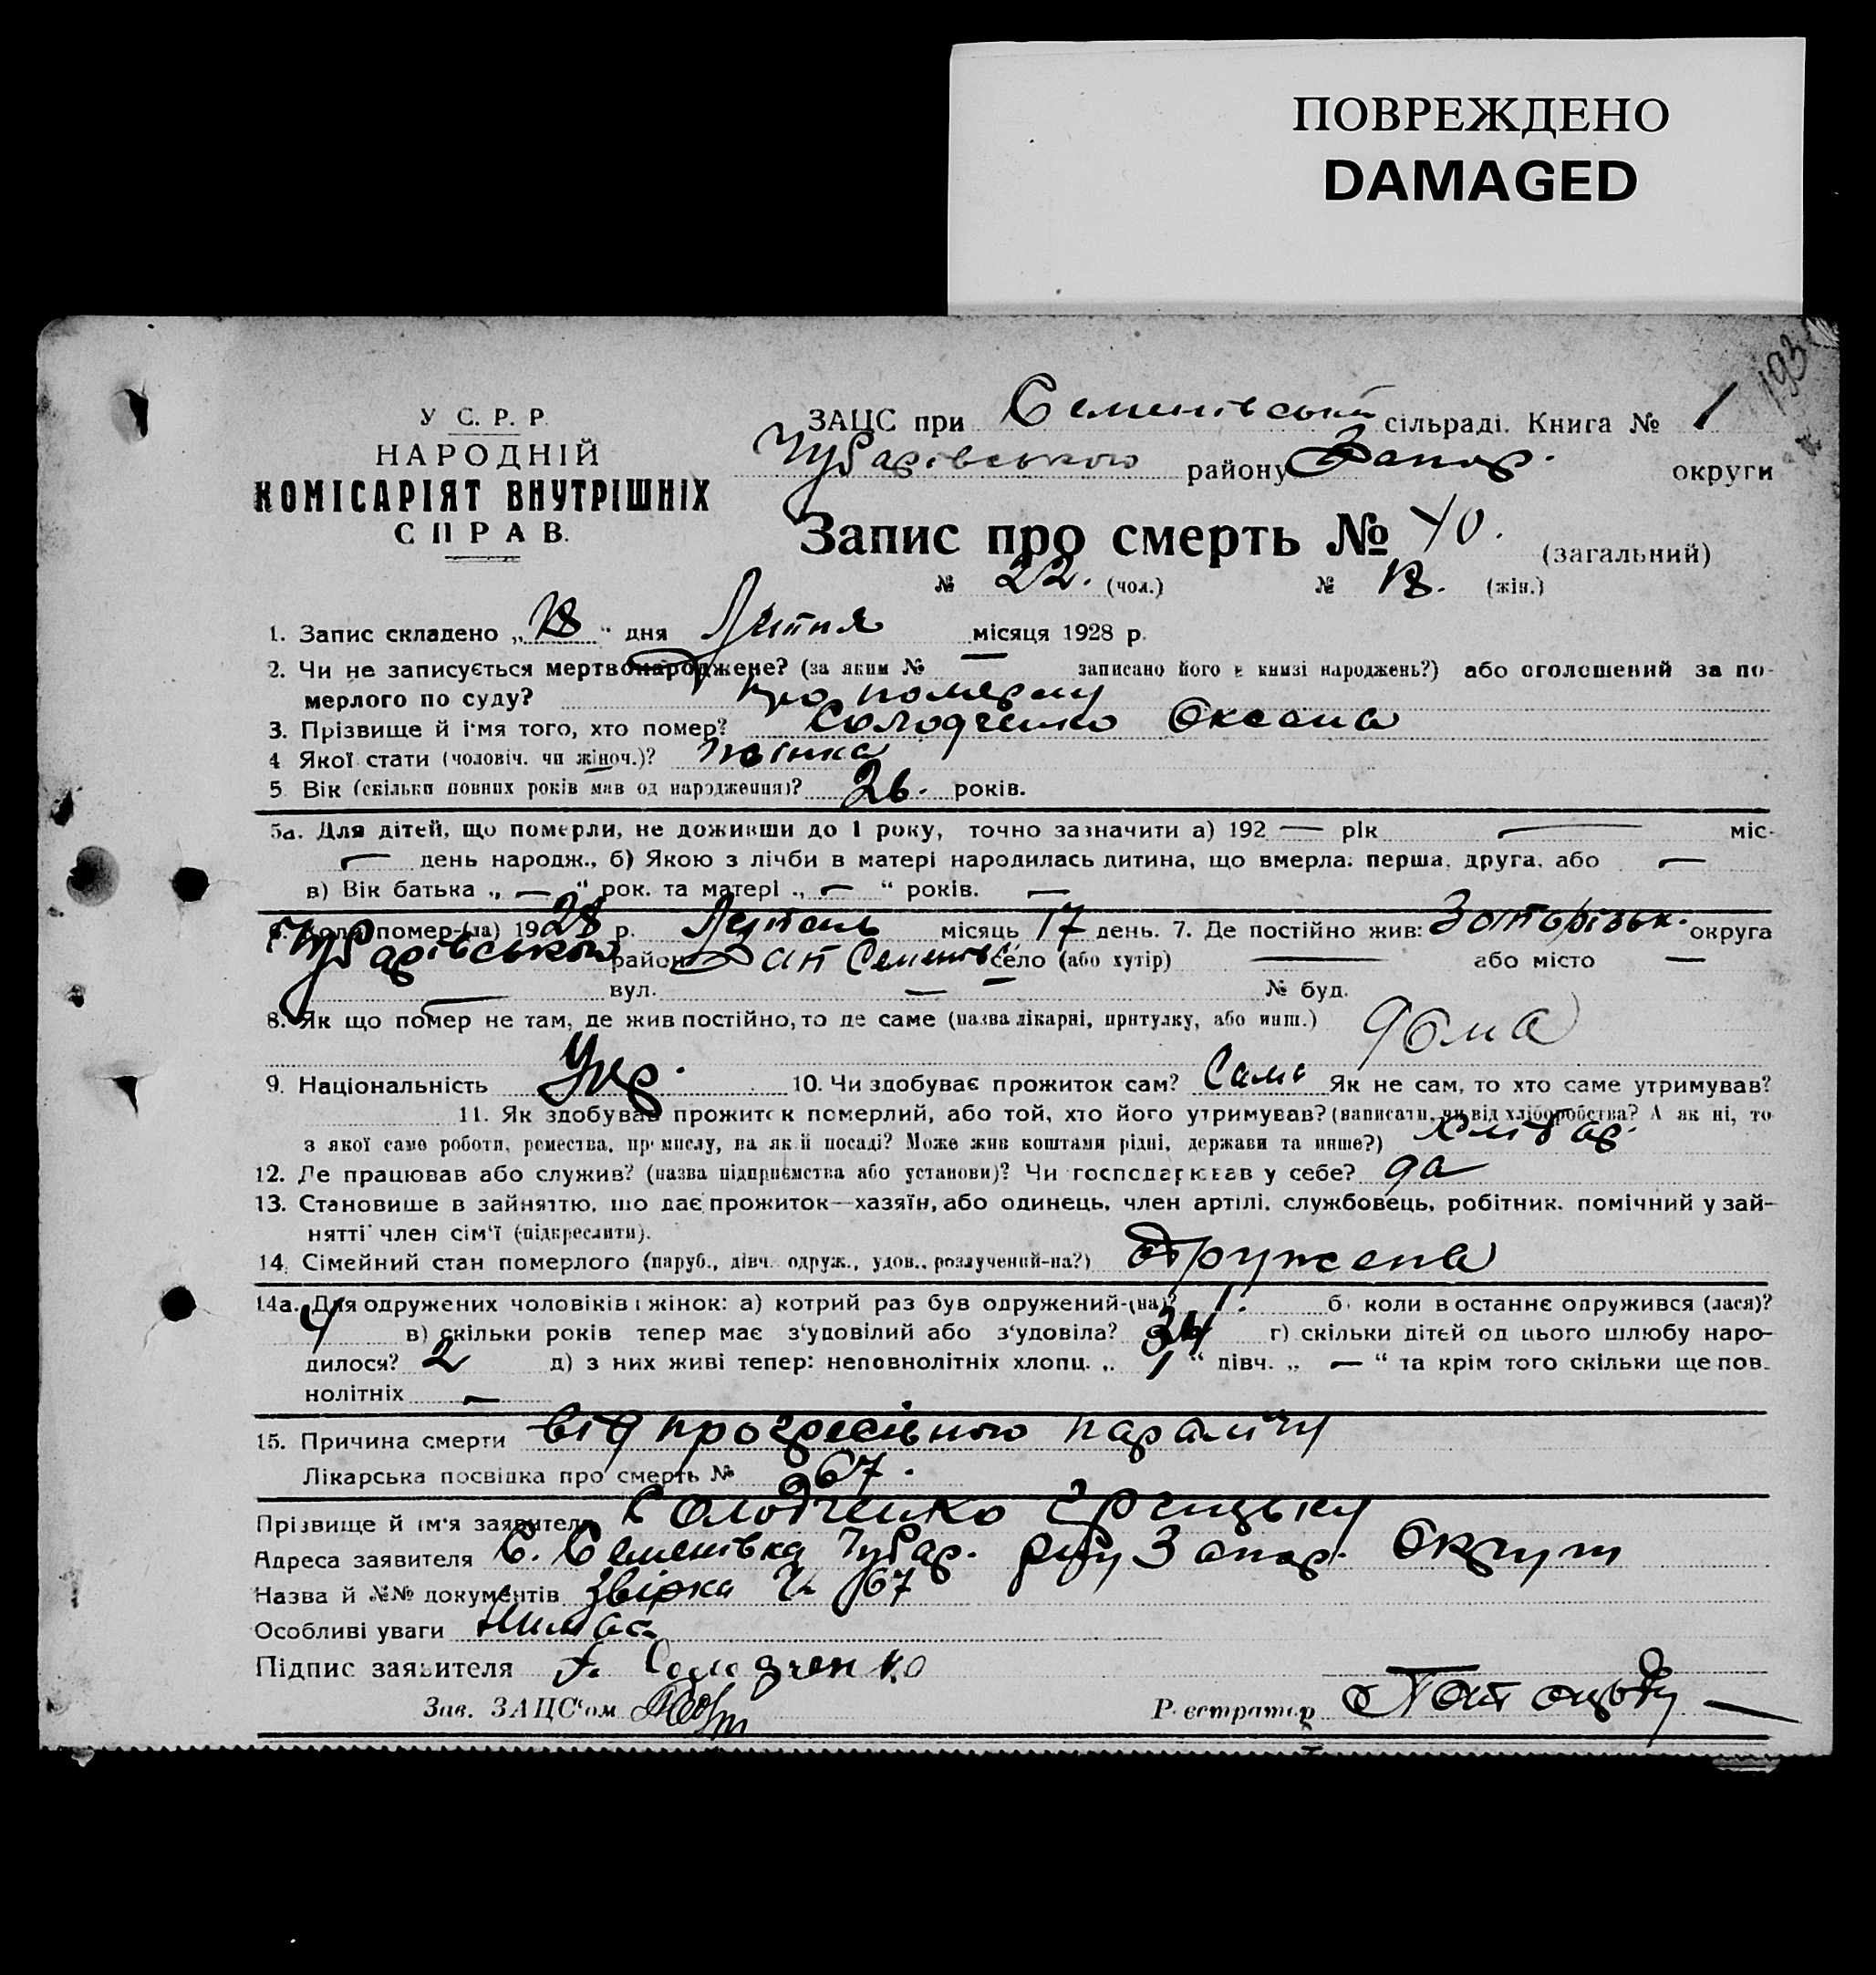 ПОВРЕЖДЕНО
DAMAGED
У С. Р. Р.
НАРОДНІЙ
КОМІСАРІЯТ ВНУТРІШНІХ
СПРАВ.
ЗАЦС при Семенівській сільраді. Книга № 1
Чубарівського району Запор. округи
Запис про смерть № 40. (загальний)
№ 22. (чол.) № 18. (жін.)
1. Запис складено „18“ дня Липня місяця 1928 р.
2. Чи не записується мертвонароджене? (за яким № — записано його в книзі народжень?) або оголошений за по-
мерлого по суду? про померлу
3. Прізвище й ім'я того, хто помер? Солодченко Оксана
4 Якої стати (чоловіч. чи жіноч.)? жінка
5 Вік (скільки повних років мав од народження)? 26. років.
5а. Для дітей, що померли, не доживши до 1 року, точно зазначити а) 192 — рік — міс-
— день народж., б) Якою з лічби в матері народилась дитина, що вмерла: перша, друга, або —
в) Вік батька „ — “ рок. та матері „ — “ років. —
6. Коли помер-(ла) 1928 р. Липень місяць 17 день. 7. Де постійно жив: Запорізьк. округа
Чубарівського район село (або хутір) — або місто —
— вул. — № буд.
8. Як що помер не там, де жив постійно, то де саме (назва лікарні, притулку, або инш.) дома
9. Національність Укр. 10. Чи здобуває прожиток сам? Сама Як не сам, то хто саме утримував?
11. Як здобував прожиток померлий, або той, хто його утримував? (написати, чи від хліборобства? А як ні, то
з якої саме роботи, ремества, промислу, на якій посаді? Може жив коштами рідні, держави та инше?) хлібар.
12. Де працював або служив? (назва підприємства або установи)? Чи господарював у себе? да
13. Становише в зайняттю, що дає прожиток—хазяїн, або одинець, член артілі, службовець, робітник, помічний у зай-
нятті член сім'ї (підкреслити).
14. Сімейний стан померлого (паруб., дівч. одруж., удов., розлучений-на?) одружена
14а. Для одружених чоловіків і жінок: а) котрий раз був одружений-(на)? 1. б) коли востаннє одружився (лася)?
в) скільки років тепер має з'удовілий або з'удовіла? г) скільки дітей од цього шлюбу наро-
дилося? 2 д) з них живі тепер: неповнолітніх хлопц. „ 1 “ дівч. „ — “ та крім того скільки ще пов-
нолітніх —
15. Причина смерти від прогресівного паралічу
Лікарська посвідка про смерть № 967.
Прізвище й ім'я заявителя Солодченко Грицьку
Адреса заявителя С. Семенівка Чубар. р-ну Запор. Округи
Назва й №№ документів
Особливі уваги немає
Підпис заявителя Солодченко
Зав. ЗАЦС'ом
Реєстратор